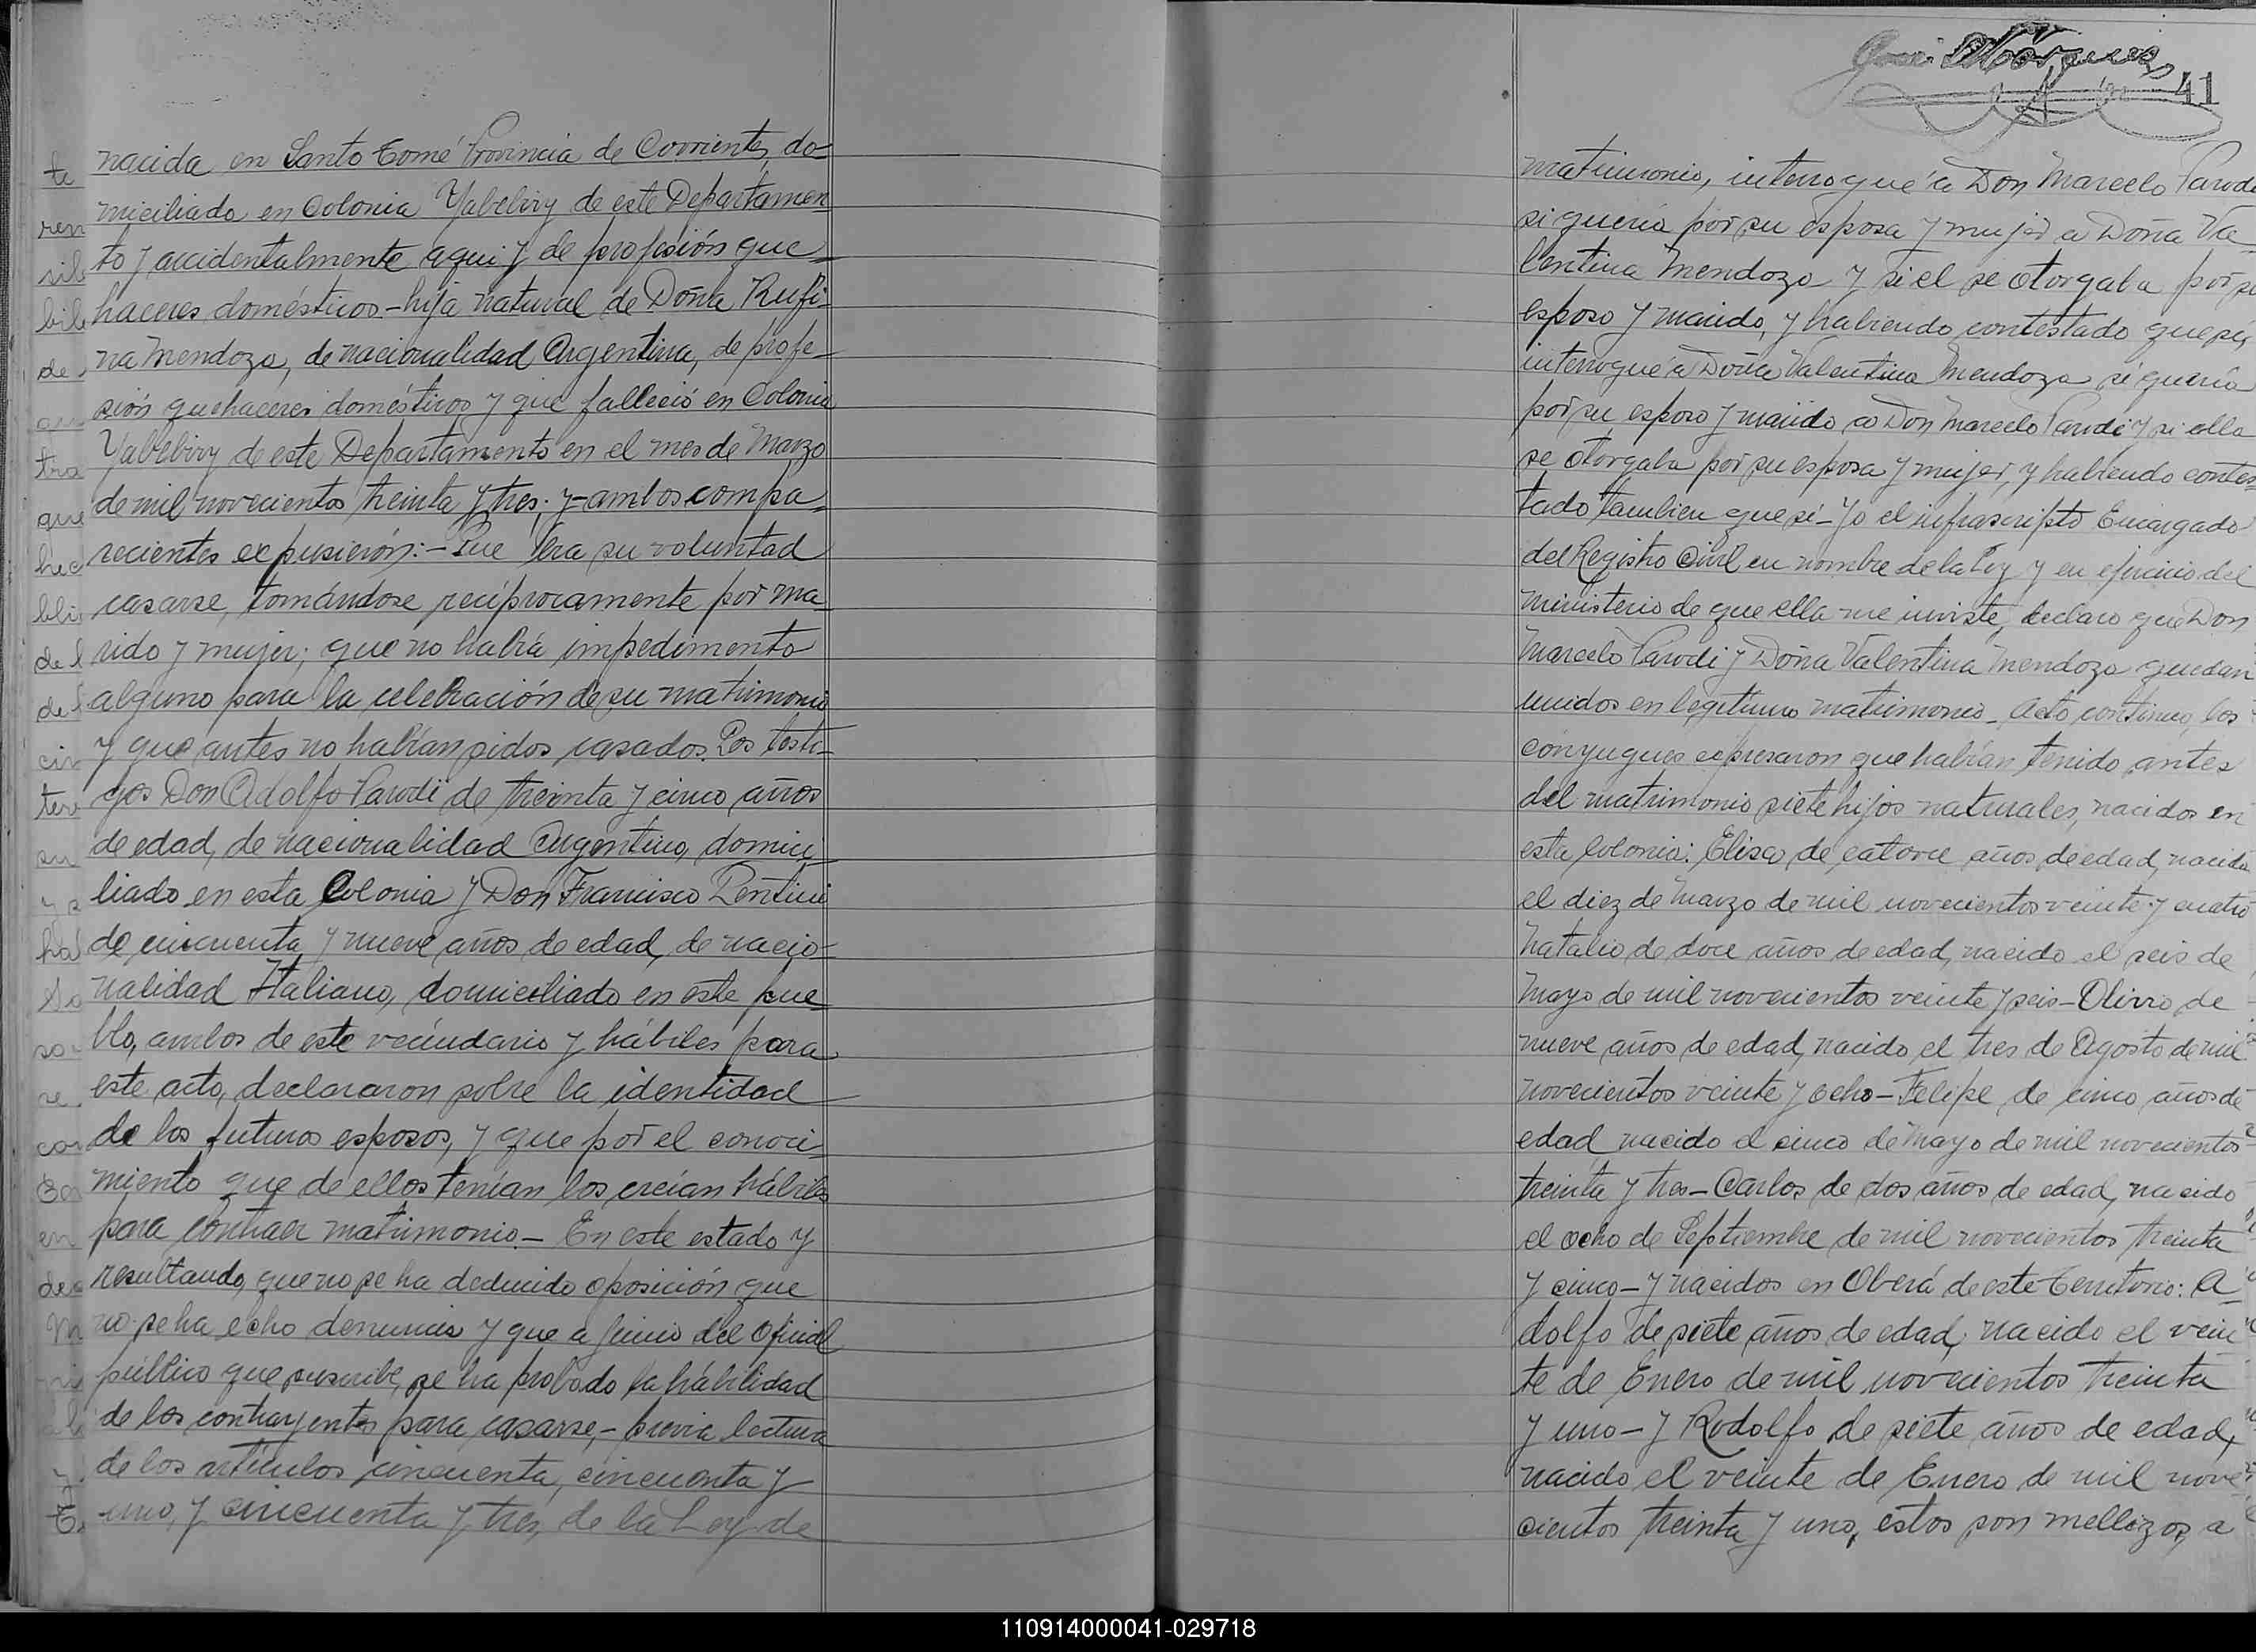 nacida en Santo Tomé Provincia de Corrientes, do-
miciliada en Colonia Yabebiry de este Departamen
to y accidentalmente aqui y de profesión que
haceres domésticos - hija natural de Doña Rufi-
na Mendoza, de nacionalidad Argentina, de profe-
sión quehaceres domésticos y que falleció en Colonia
Yabebiry de este Departamento en el mes de Marzo
de mil novecientos treinta y tres; y - ambos compa-
recientes expusierón: - Que era su voluntad
casarse, tomándose recíprocamente por ma-
rido y mujer; que no había impedimento
alguno para la celebración de su matrimonio
y que antes no habían sidos casados. Los testi-
gos Don Adolfo Parodi de treinta y cinco años
de edad, de nacionalidad Argentino, domici-
liado en esta Colonia y Don Francisco
de cincuenta y nueve años de edad, de nacio-
nalidad Italiano, domiciliado en este pue-
blo, ambos de este vecindario y hábiles para
este acto, declararon sobre la identidad
de los futuros esposos, y que por el conoci-
miento que de ellos tenían los creían hábiles
para contraer matrimonio - En este estado y
resultando, que no se ha deducido oposición que
no se ha echo denuncia y que a juicio del Oficial
público que suscribe, se ha probado la hábilidad
de los contrayentes para casarse, - previa lectura
de los artículos cincuenta, cincuenta y
uno, y cincuenta y tres, de la Ley de
José
41
matrimonio, interrogué a Don Marcelo Parodi
si quería por su esposa y mujer a Doña Va-
lentina Mendoza y si el se otorgaba por su
esposo y marido, y habiendo contestado que si,
interrogué a Doña Valentina Mendoza si quería
por su esposo y marido a Don Marcelo Parodi y si ella
se otorgaba por su esposa y mujer, y habiendo contes-
tado tambien que si - Yo el infrascripto Encargado
del Registro Civil en nombre de la Ley y en ejercicio del
ministerio de que ella me inviste, declaro que Don
Marcelo Parodi y Doña Valentina Mendoza quedan
unidos en legítimo matrimonio - Acto continuo, los
cónyugues expresaron que habían tenido antes
del matrimonio siete hijos naturales, nacidos en
esta Colonia: Elisa, de catorce años de edad, nacida
el diez de Marzo de mil novecientos veinte y cuatro
Natalio de doce años de edad, nacido el seis de
Mayo de mil novecientos veinte y seis - de
nueve años de edad, nacido el tres de Agosto de mil
novecientos veinte y ocho - Felipe, de cinco años de
edad nacido el cinco de Mayo de mil novecientos
treinta y tres - Carlos de dos años de edad, nacido
el ocho de Septiembre de mil novecientos treinta
y cinco - y nacidos en Oberá de este Territorio: A-
dolfo de siete años de edad, nacido el vein
te de Enero de mil novecientos treinta
y uno - y Rodolfo de siete años de edad,
nacido el veinte de Enero de mil nove-
cientos treinta y uno, estos son mellizos, a
110914000041-029718